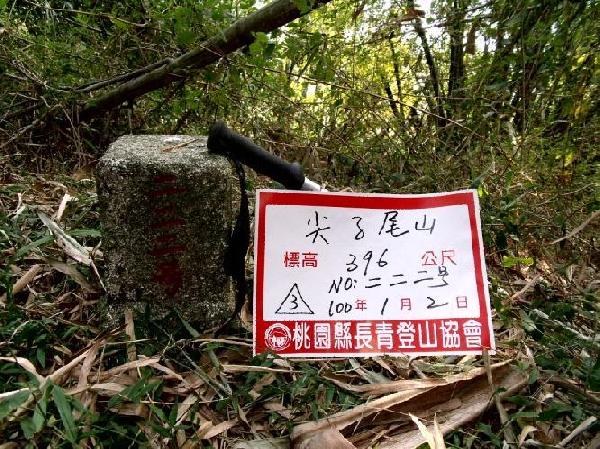 尖子尾山
標高 396 公尺
NO:二二二号
3
100年1月2日
桃園縣長青登山協會